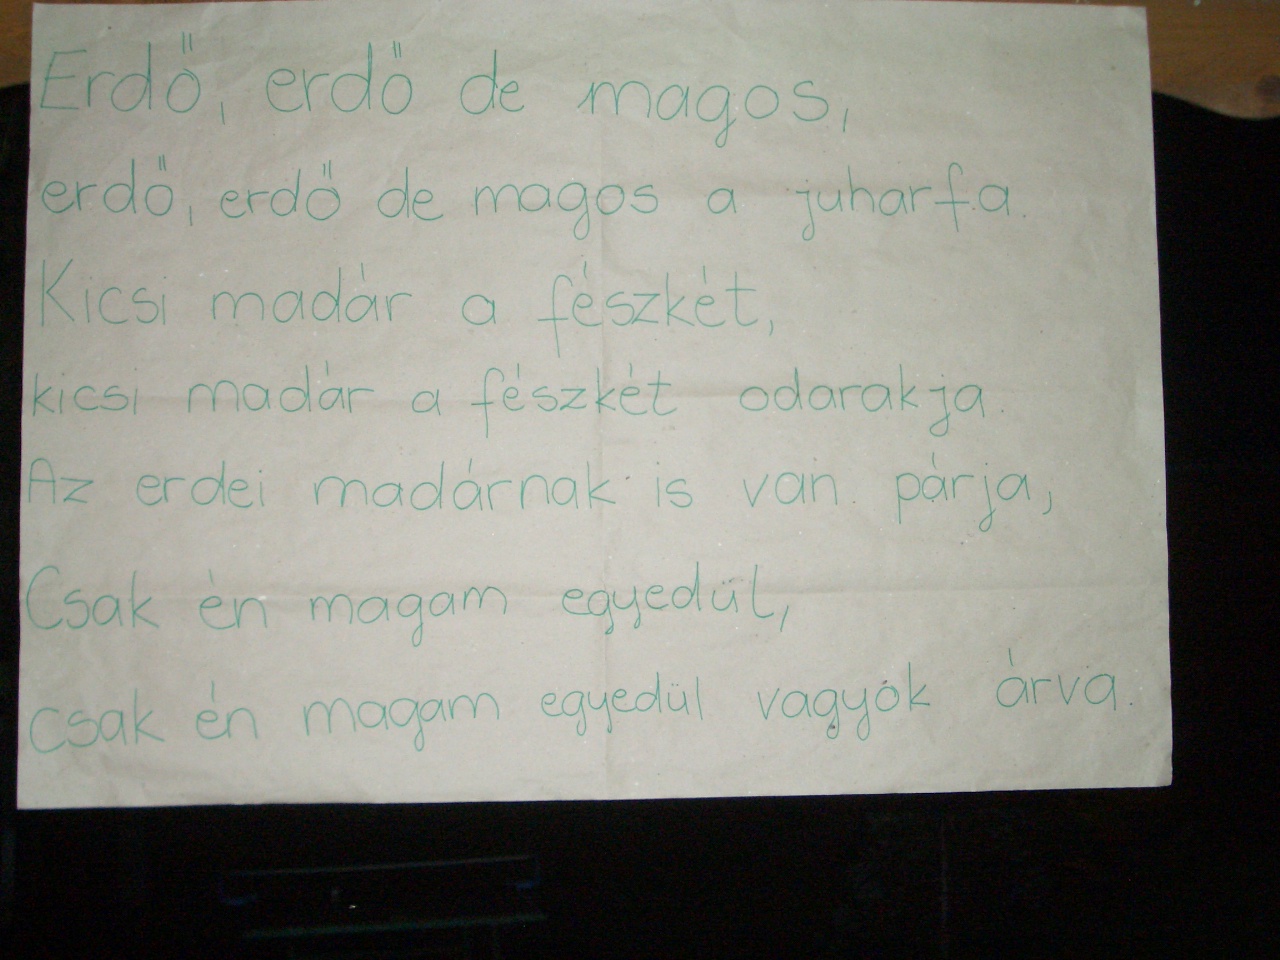 Erdő, erdő de magos,
erdő, erdő de magos a juharfa.
Kicsi madár a fészkét,
kicsi madár a fészkét odarakja.
Az erdei madárnak is van párja,
Csak én magam egyedül,
csak én magam egyedül vagyok árva.